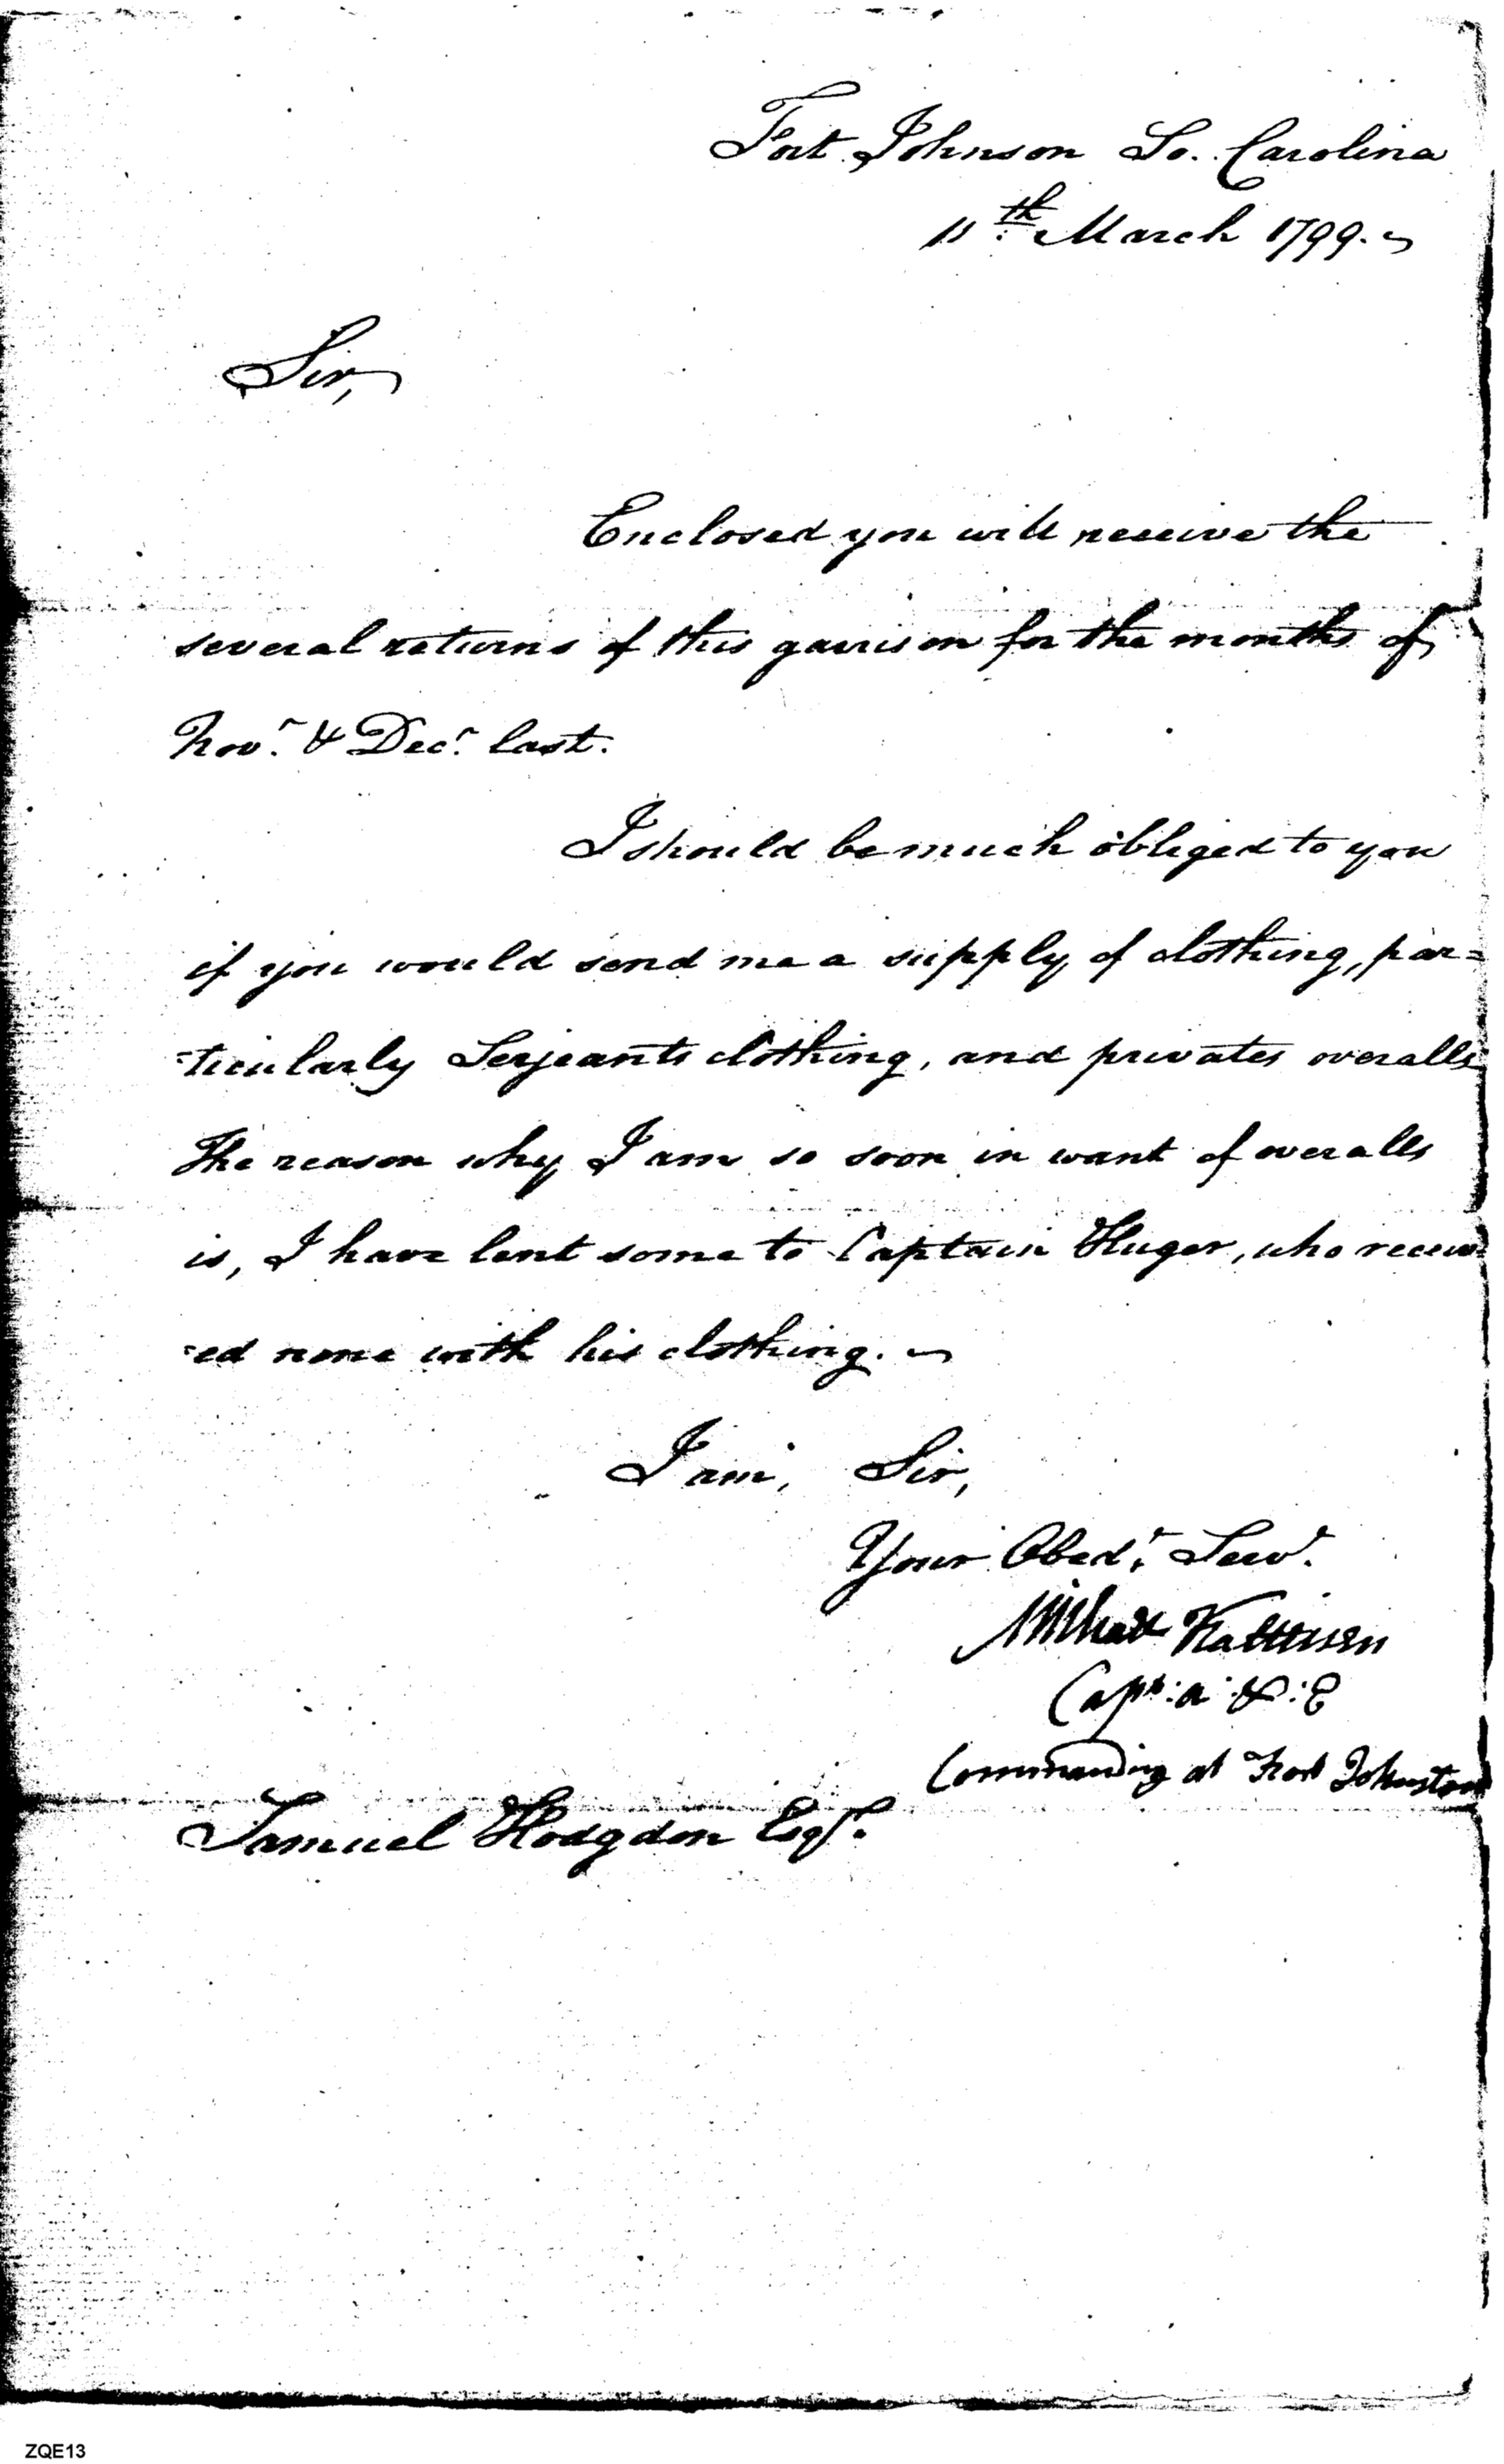 Fort Johnson So. Carolina
11th March 1799.
Sir,
Enclosed you will receive the
several returns of this garrison for the months of
Novr. & Decr. last.
I should be much obliged to you
if you would send me a supply of clothing, par=
=ticularly Serjeants clothing, and privates overalls
The reason why I am so soon in want of overalls
is, I have lent some to Captain Huger, who receiv
=ed none with his clothing.
I am, Sir,
Your Obedt. Servt.
Michael Kalteisen
Capt: a: & : E
Commanding at Fort Johnston
Samuel Hodgdon Esqr.
ZQE13